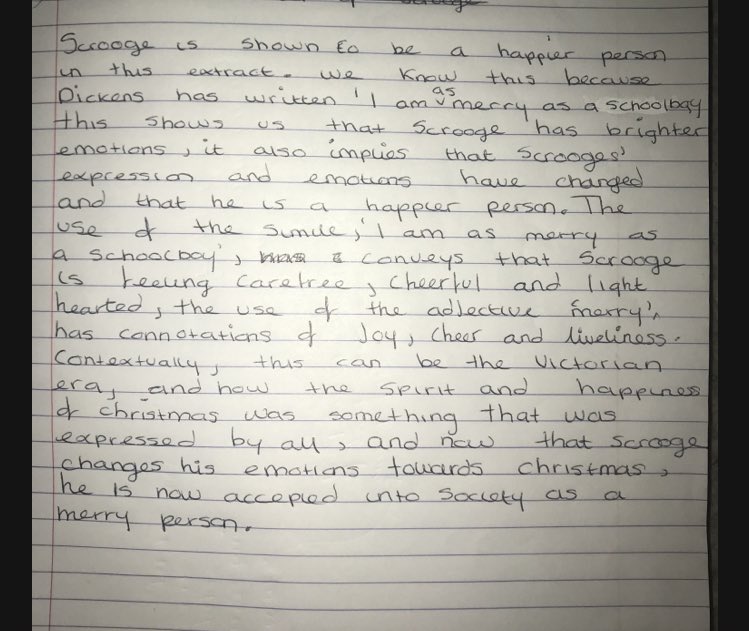 Scrooge is shown to be a happier person
in this extract. We know this because
Dickens has written 'I am as merry as a schoolboy
this shows us that Scrooge has brighter
emotions, it also implies that Scrooges'
expression and emotions have changed
and that he is a happier person. The
use of the simile, 'I am as merry as
a schoolboy', conveys that Scrooge
is feeling carefree, cheerful and light
hearted, the use of the adjective 'merry',
has connotations of Joy, cheer and liveliness.
Contextually, this can be the Victorian
era, and how the spirit and happiness
of christmas was something that was
expressed by all, and now that scrooge
changes his emotions towards christmas,
he is now accepted into society as a
merry person.